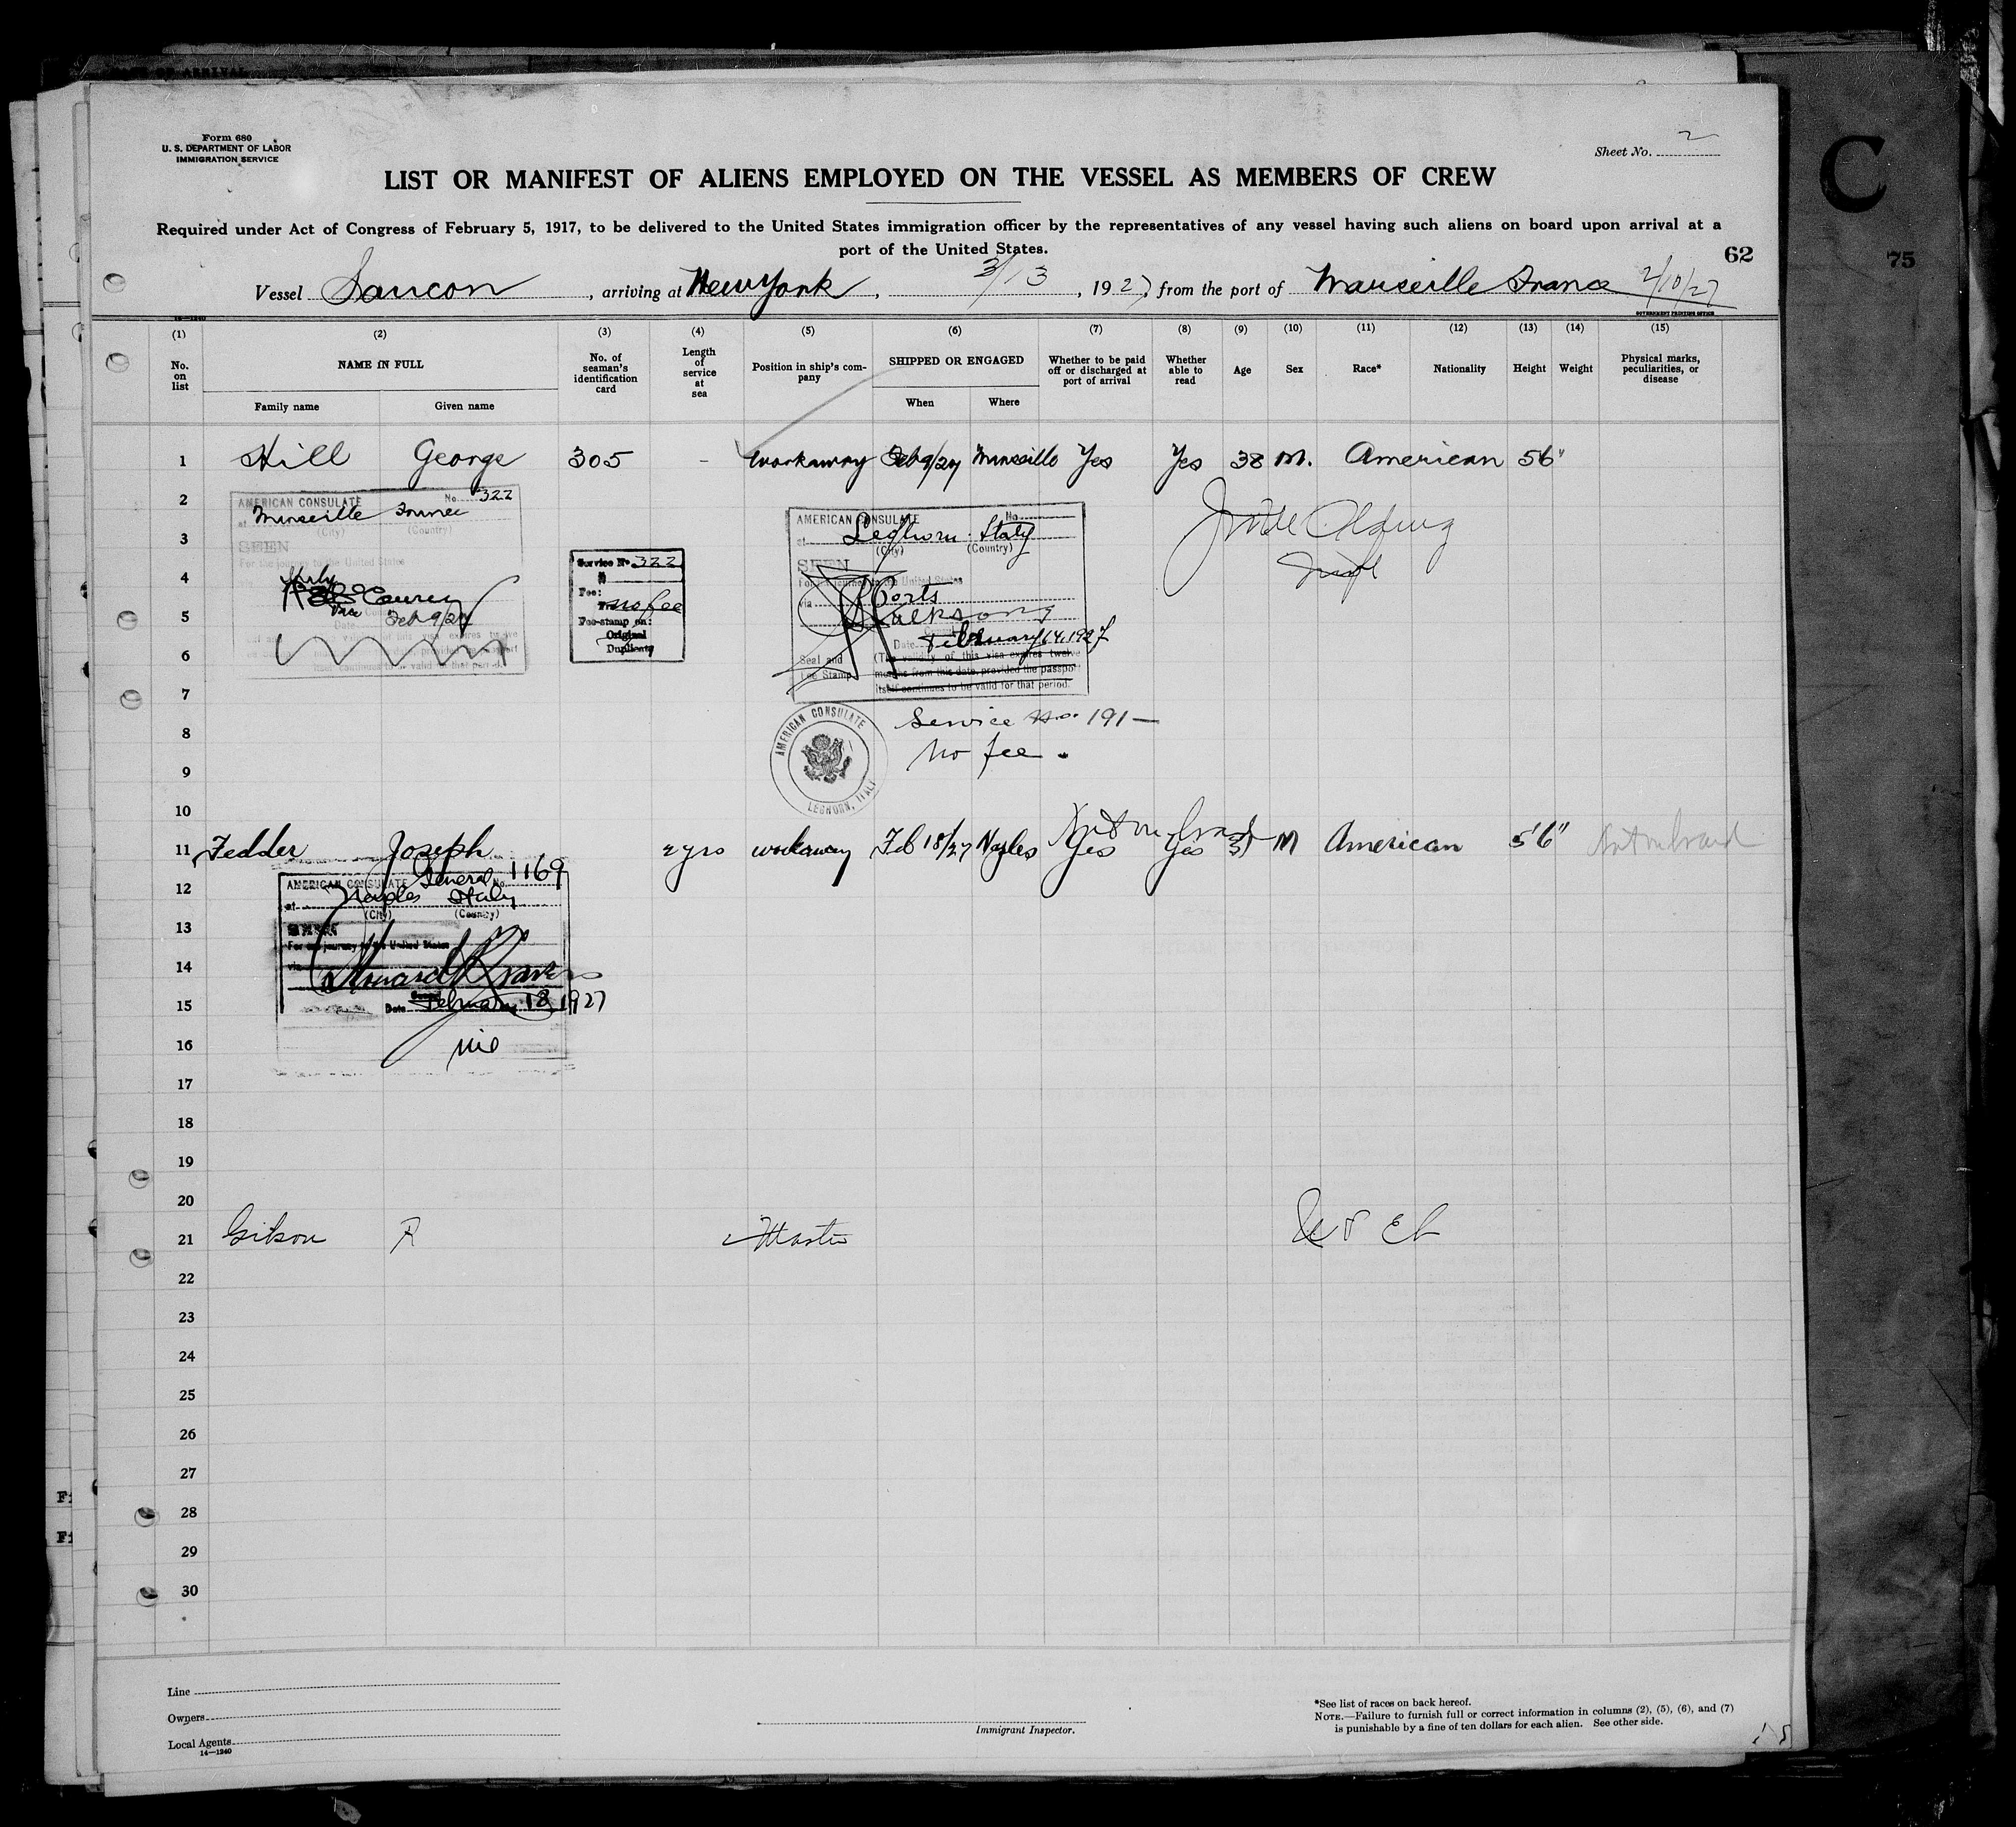 Form 680
U. S. DEPARTMENT OF LABOR
IMMIGRATION SERVICE
Sheet No. 2
LIST OR MANIFEST OF ALIENS EMPLOYED ON THE VESSEL AS MEMBERS OF CREW
Required under Act of Congress of February 5, 1917, to be delivered to the United States immigration officer by the representatives of any vessel having such aliens on board upon arrival at a
port of the United States.
62
C
75
Vessel Saucon, arriving at New York, 3/13, 1927, from the port of Marseille France 2/10/27
14-1240
GOVERNMENT PRINTING OFFICE
(1) (2) (3) (4) (5) (6) (7) (8) (9) (10) (11) (12) (13) (14) (15)
No. on list NAME IN FULL No. of seaman's identification card Length of service at sea Position in ship's company SHIPPED OR ENGAGED Whether to be paid off or discharged at port of arrival Whether able to read Age Sex Race* Nationality Height Weight Physical marks, peculiarities, or disease
Family name Given name When Where
1 Hill George 305 - workaway Feb 9/27 Marseille Yes Yes 38 M. American 5 6"
2
AMERICAN CONSULATE No. 322
at Marseille France
(City) (Country)
SEEN
For the journey to the United States
Vice
Date Feb 9/27
Service No 322
Fee:
No fee
Fee-stamp on:
Original
Duplicate
AMERICAN CONSULATE No.
at Leghorn Italy
(City) (Country)
SEEN
For the journey to the United States
via Ports
Date February 14, 1927
Seal and
Fee Stamp
(The validity of this visa expires twelve
months from this date, provided the passport
itself continues to be valid for that period.
3
4
5
6
7
8
AMERICAN CONSULATE
LEGHORN, ITALY
Service No. 191 —
No fee.
9
10
11 Fedder Joseph 2 yrs workaway Feb 18/27 Naples Yes Yes 31 M American 5'6" Not on board
Not on board
AMERICAN CONSULATE General No. 1169
at Naples Italy
(City) (Country)
SEEN
For the journey to the United States
via
Date February 18 1927
12
13
14
15
16
17
18
19
20
21 Gibson R Master
22
23
24
25
26
27
28
29
30
Line
Owners
Local Agents
14—1240
Immigrant Inspector.
*See list of races on back hereof.
NOTE.—Failure to furnish full or correct information in columns (2), (5), (6), and (7)
is punishable by a fine of ten dollars for each alien. See other side.